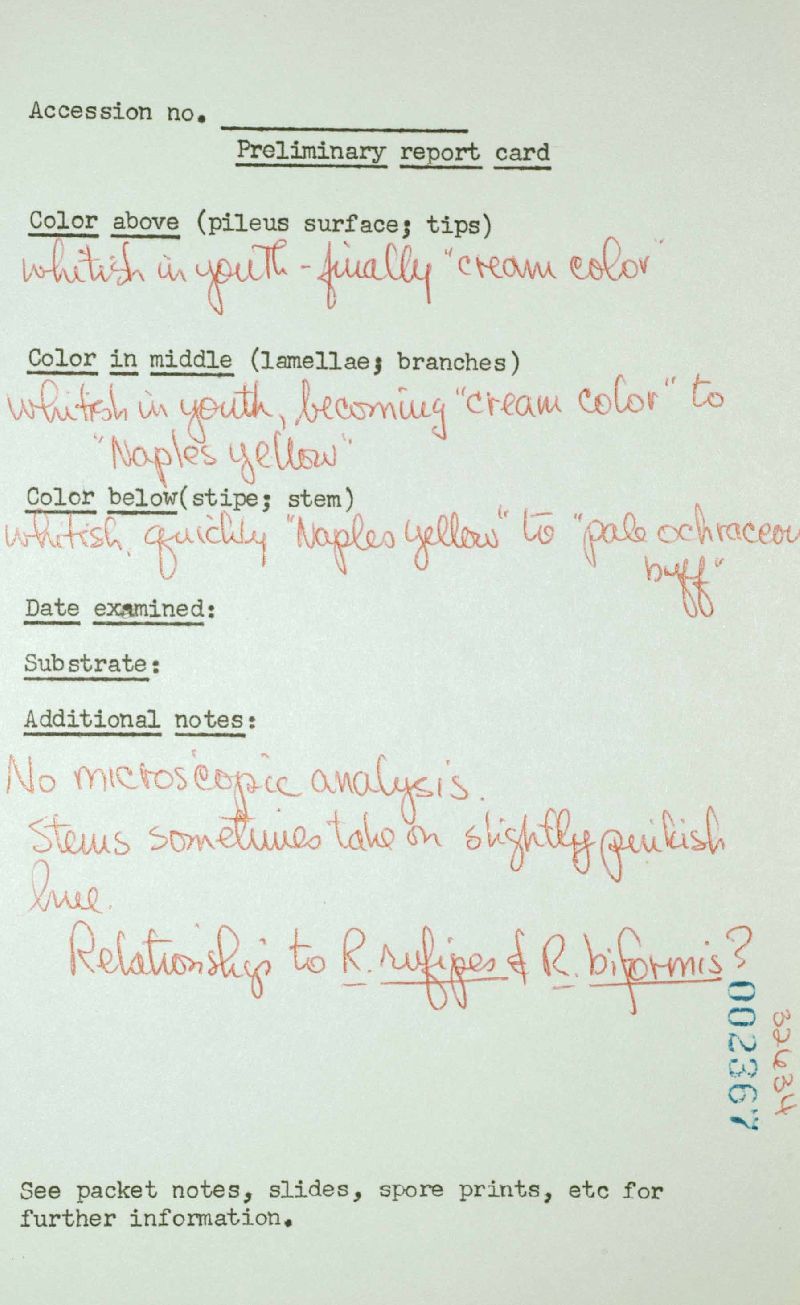 Accession no.
Preliminary report card
Color above (pileus surface; tips)
whitish in youth - finally "cream color"
Color in middle (lamellae; branches)
whitish in youth, becoming "cream color" to
"Naples yellow"
Color below(stipe; stem)
whitish, quickly "Naples yellow" to "pale ochraceou
buff"
Date examined:
Substrate:
Additional notes:
No microscopic analysis.
Stems sometimes take on slightly pinkish
hue.
Relationship to R. rufipes & R. biformis?
002367
32634
See packet notes, slides, spore prints, etc for
further information.